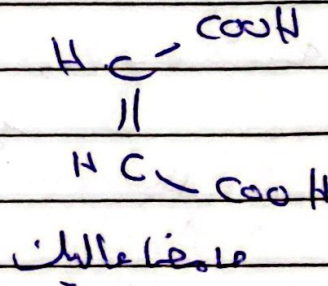 H C COOH
||
H C COOH
حامض مالیك